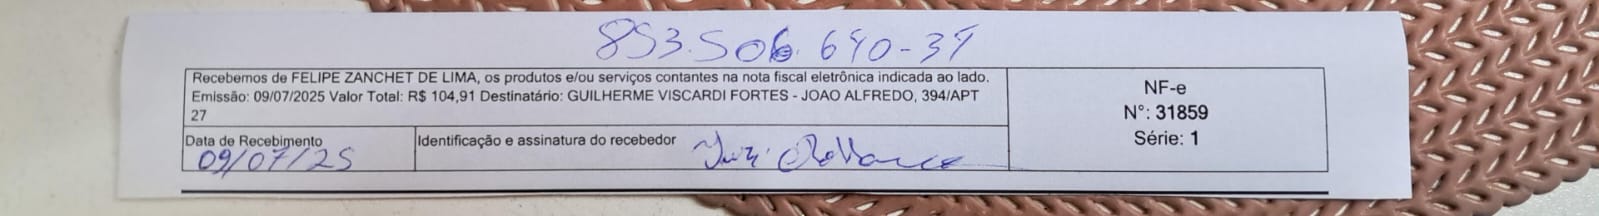 853.506.640-34
Recebemos de FELIPE ZANCHET DE LIMA, os produtos e/ou serviços contantes na nota fiscal eletrônica indicada ao lado.
Emissão: 09/07/2025 Valor Total: R$ 104,91 Destinatário: GUILHERME VISCARDI FORTES - JOAO ALFREDO, 394/APT
27
NF-e
N°: 31859
Série: 1
Data de Recebimento
09/07/25
Identificação e assinatura do recebedor